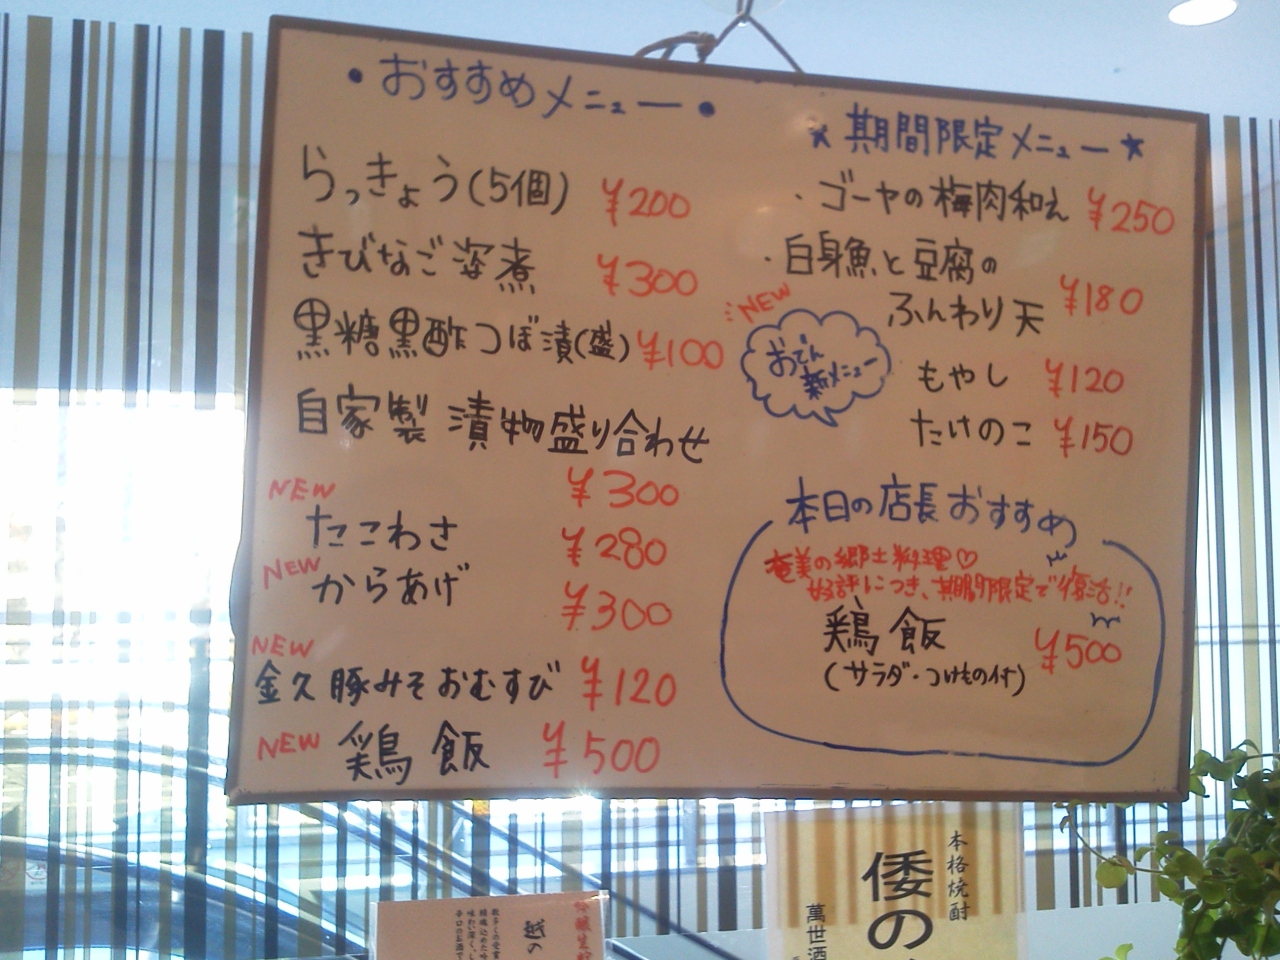 ・おすすめメニュー・
らっきょう(5個) ¥200
きびなご姿煮 ¥300
黒糖黒酢つぼ漬(盛) ¥100
自家製 漬物盛り合わせ
¥300
NEW
たこわさ ¥280
NEW
からあげ ¥300
NEW
金久 豚みそおむすび ¥120
NEW 鶏飯 ¥500
★期間限定メニュー★
・ゴーヤの梅肉和え ¥250
・白身魚と豆腐の
ふんわり天 ¥180
NEW
おでん
新メニュー
もやし ¥120
たけのこ ¥150
本日の店長おすすめ
奄美の郷土料理♡
好評につき、期間限定で復活!!
鶏飯 ¥500
(サラダ・つけもの付)
本格焼酎
倭の
萬世酒
越の